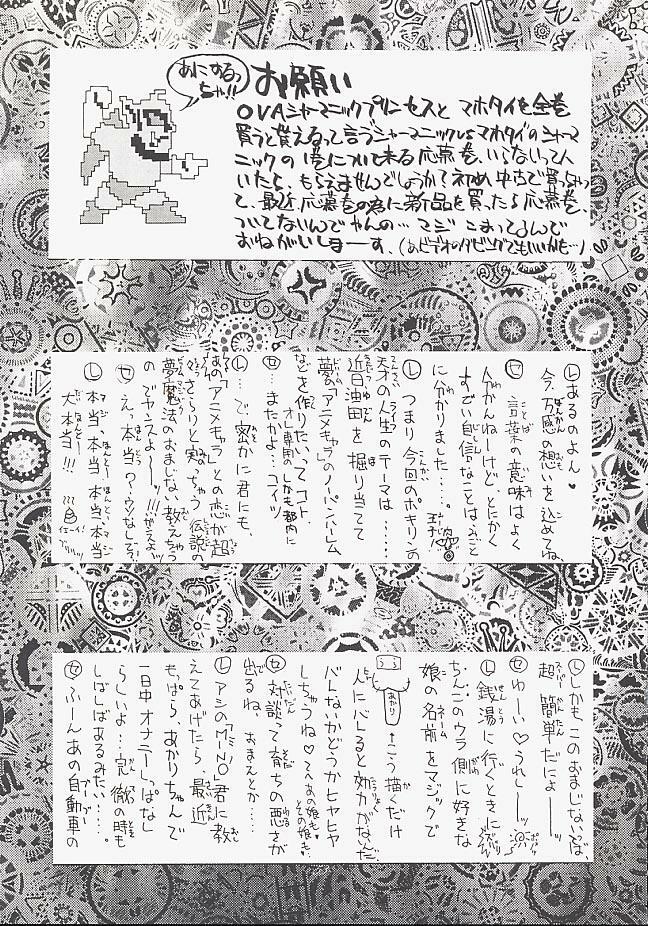 あにするっ
ちゃ!!
お願い
OVAシャーマニックプリンセスと マホタイを全巻
買うと貰えるって言うシャーマニックVSマホタイのシャーマ
ニックの1巻について来る応募巻、いらないって人
いたら、もらえませんでしょうか?初め中古で買っちゃっ
て、最近応募巻の為に新品を買ったら応募巻、
ついてないんでやんの…マジこまってるんで
おねがいしまーす、(あとビデオのダビングでもいいかも…)
Ⓛあるのよん♥
今、万感の想いを込めてね
Ⓨ言葉の意味はよく
分かんねーけど、とにかく
すごい自信なことはみごと
に分かりました……。
Ⓛつまり今回のポキリンの
天才の人生のテーマは……
近日油田を掘り当てて
夢の「アニメキャラ」のノーパンハーレム
などを作りたいってコト、
オレ専用のしかも都内に
Ⓨまたかよ…コイツ
Ⓛ…で、密かに君にも、
あの「アニメキャラ」との恋が超
さらりと実っちゃう伝説の
夢魔法のおまじない教えちゃう
のでヤンスよーーッ!!!
Ⓨえっ本当?ウソなしろ?
Ⓛ本当、本当、本当、本当
大本当!!!
Ⓛしかもこのおまじないは、
超簡単だによーーッ
Ⓨゆーい♡うれしーーッ
Ⓛ銭湯に行くときに
ちんこのウラ側に好きな
娘の名前をマジックで
あかり
↑こう描くだけ
人にバレると効力がないんだ
バレないかどうかヒヤヒヤ
しちゃうね♡てへあの娘も♥その娘も♥
Ⓨ対談って育ちの悪さが
出るね、おまえとか……
ⓁアシのMINO君に教
えてあげたら、最近
もっぱら、あかりちゃんで
一日中オナニーしっぱなし
らしいよ…完徹の時も
しばしばあるみたい……。
Ⓨふーんあの自動車の